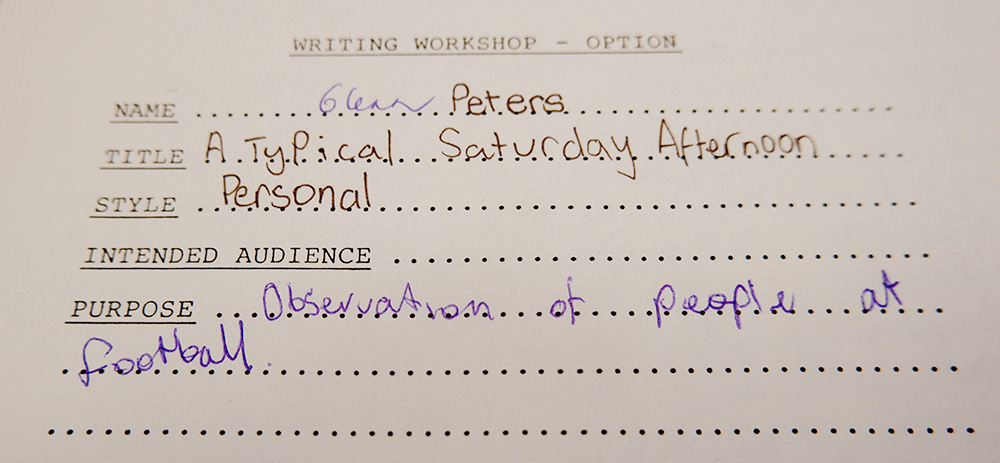 WRITING WORKSHOP - OPTION
NAME Glenn Peters
TITLE A Typical Saturday Afternoon
STYLE Personal
INTENDED AUDIENCE
PURPOSE Observation of people at
football.